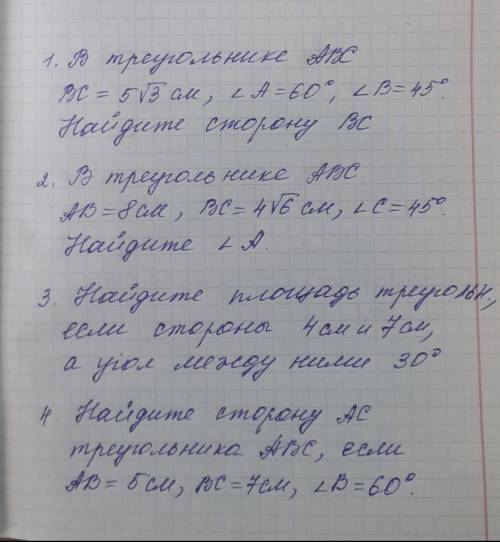 1. В треугольнике АВС
ВС = 5√3 см, ∠А=60°, ∠В=45°.
Найдите сторону ВС
2. В треугольнике АВС
АВ=8см, ВС=4√6 см, ∠С=45°.
Найдите ∠А.
3. Найдите площадь треугольн,
если стороны 4см и 7см,
а угол между ними 30°
4. Найдите сторону АС
треугольника АВС, если
АВ= 5см, ВС=7см, ∠В=60°.